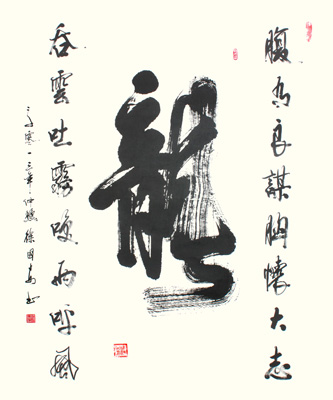 腹有良謀胸懷大志
龍
吞雲吐霧喚雨呼風